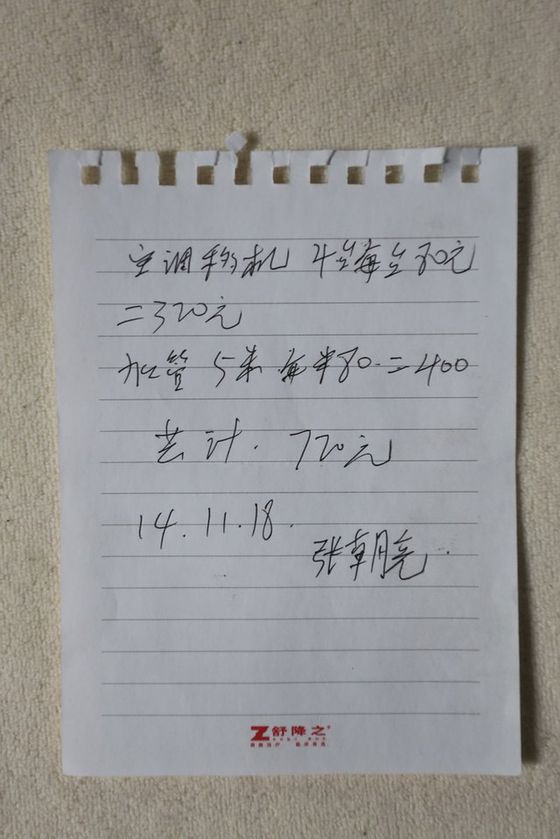 空调移机 4台每台80元
=320元
加管 5米 每米80.=400
共计. 720元
14.11.18.
张朝亮.
舒降之